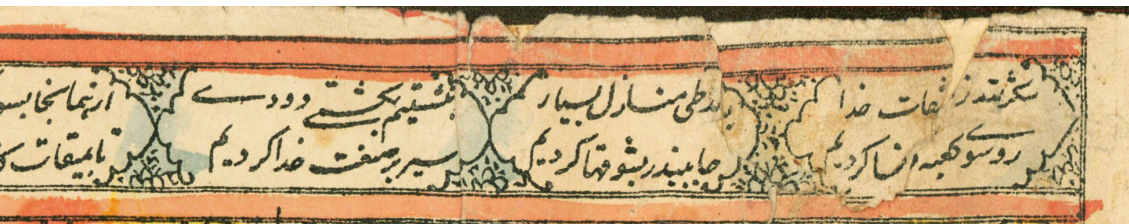 شکر لله ز صفات خدا
روسوی کعبه انشا کردیم
بعد طی منازل بسیار
جا ببندر بشوقها کردیم
بنشستیم بکشتی دودے
سیر بر صنعت خدا کردیم
از نما نجا بسو
تا بمیقات